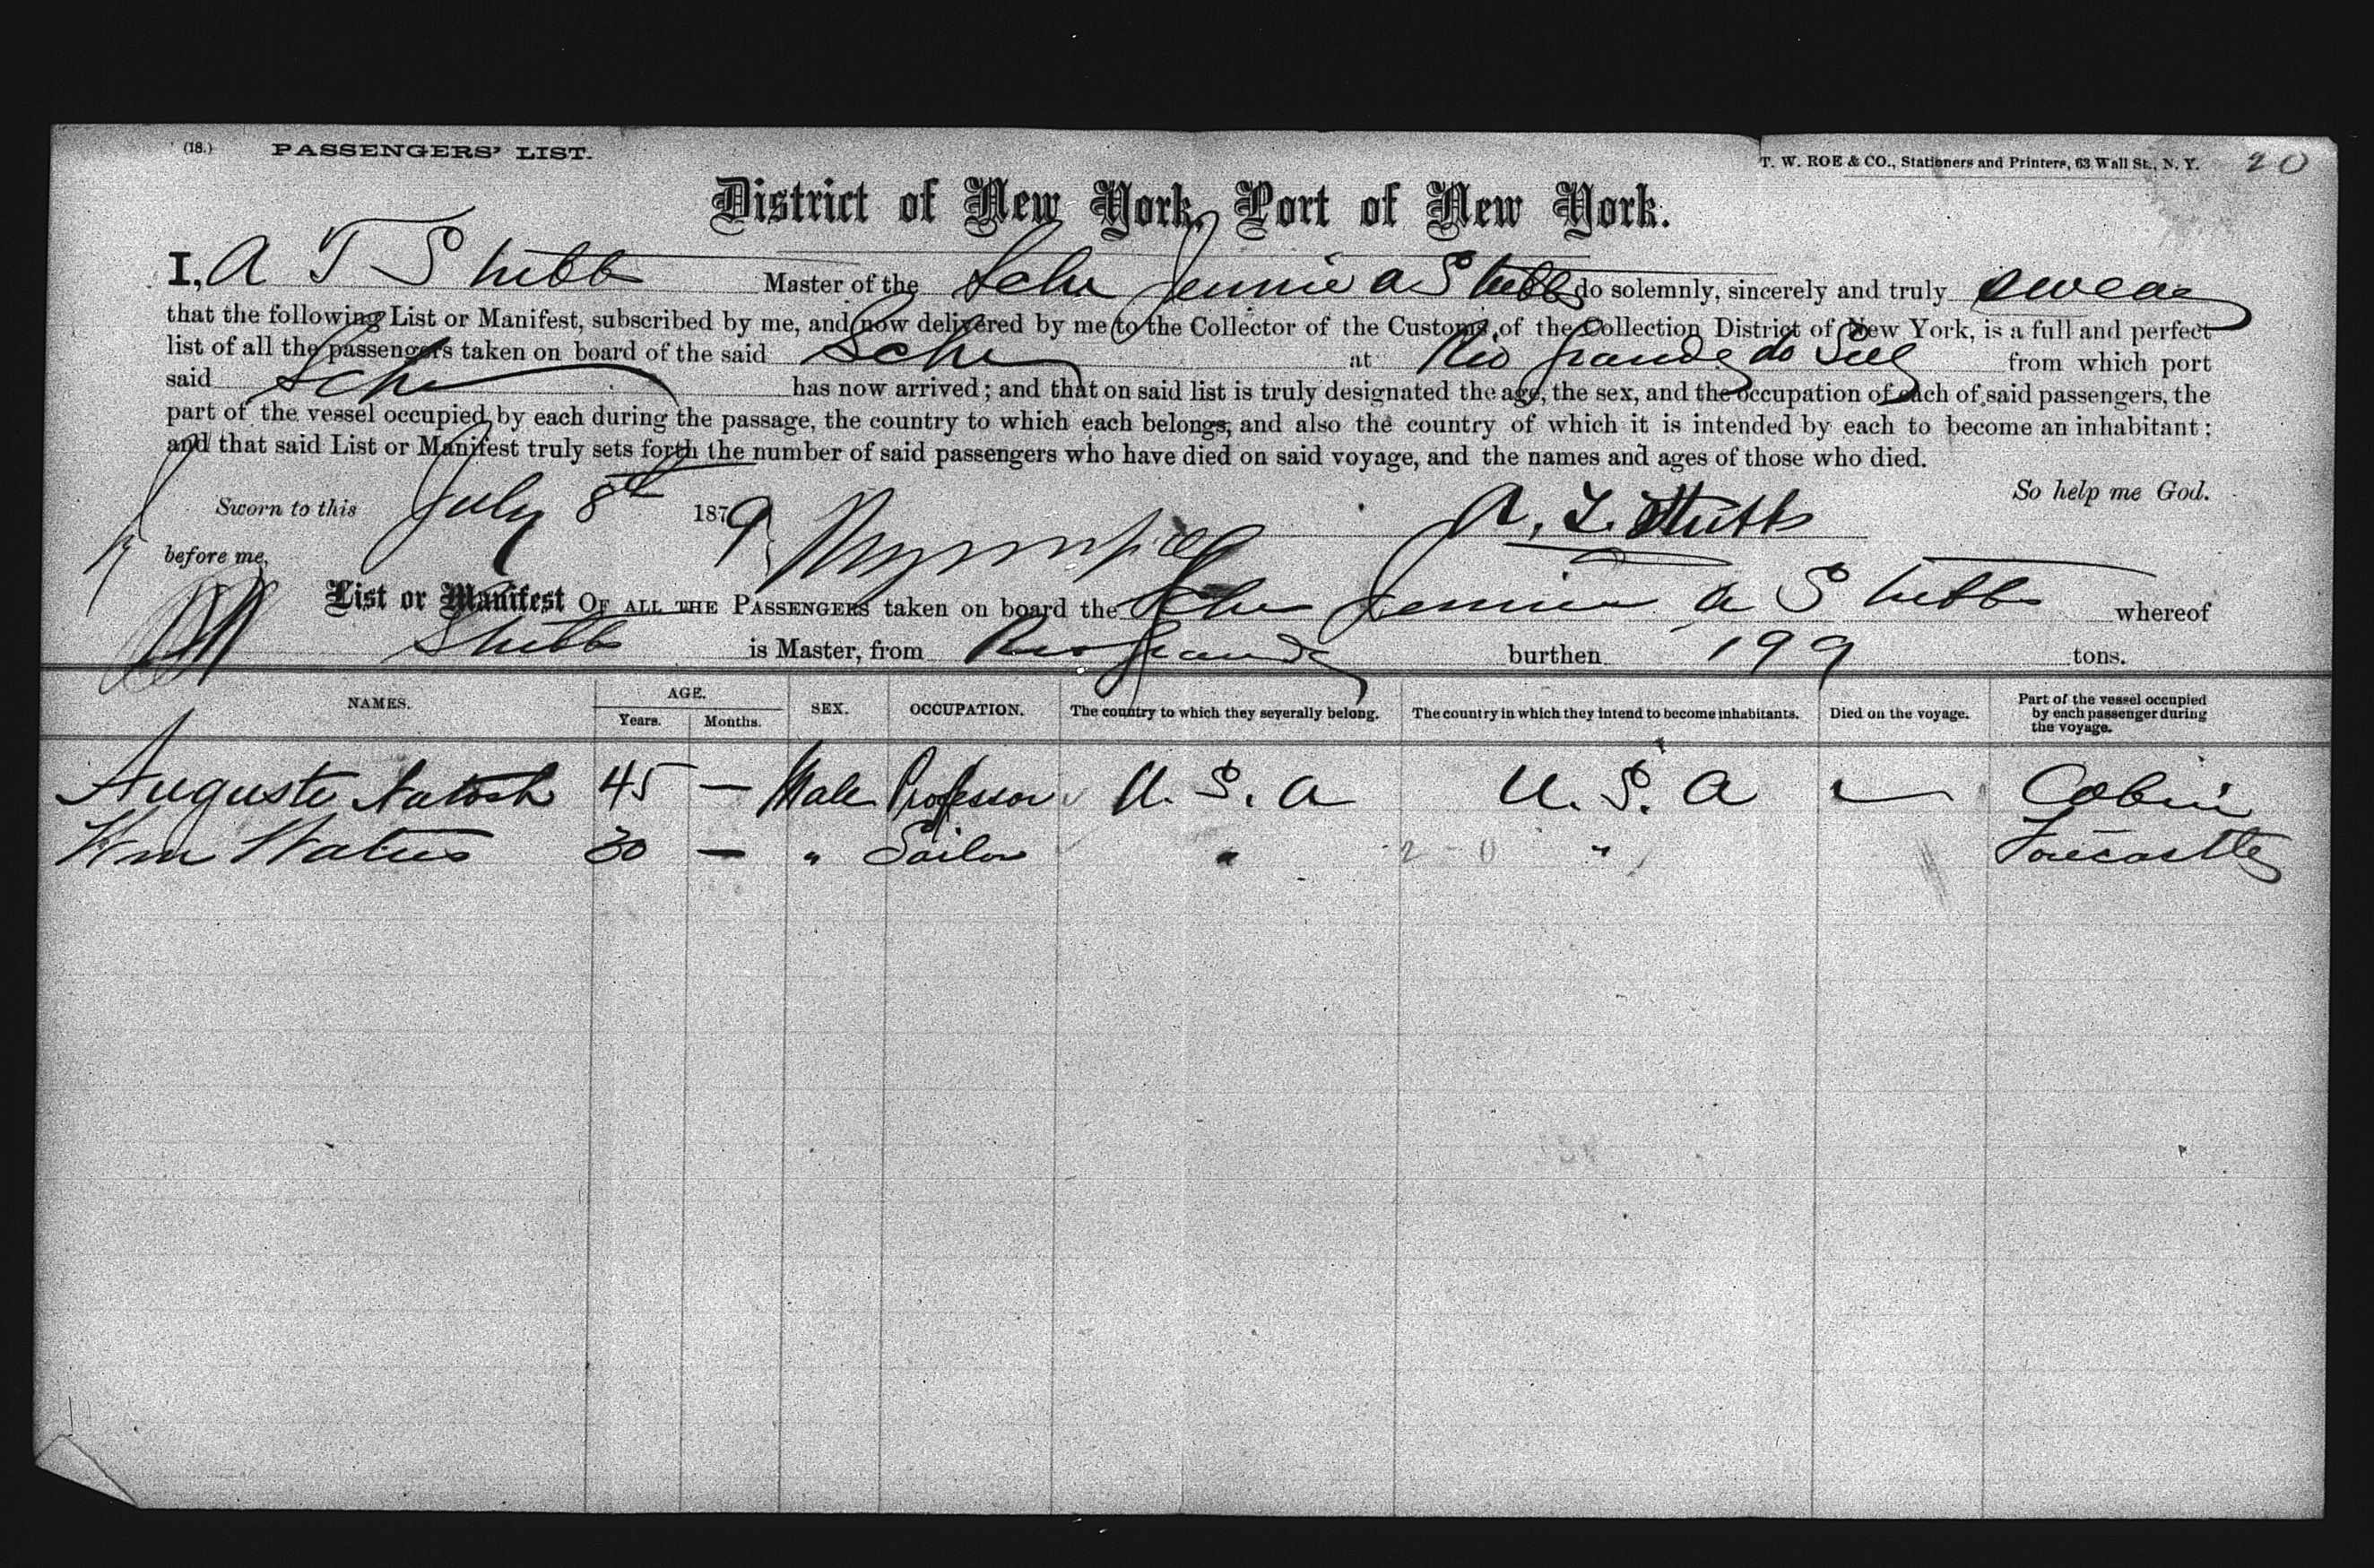 (18.) PASSENGERS' LIST.
T. W. ROE & CO., Stationers and Printers, 63 Wall St., N. Y. 20
District of New York, Port of New York.
I, A T Stubbs Master of the Schr Jennie A Stubbs do solemnly, sincerely and truly swear
that the following List or Manifest, subscribed by me, and now delivered by me to the Collector of the Customs of the Collection District of New York, is a full and perfect
list of all the passengers taken on board of the said Schr at Rio Grande do Sul from which port
said Schr has now arrived; and that on said list is truly designated the age, the sex, and the occupation of each of said passengers, the
part of the vessel occupied by each during the passage, the country to which each belongs, and also the country of which it is intended by each to become an inhabitant;
and that said List or Manifest truly sets forth the number of said passengers who have died on said voyage, and the names and ages of those who died.
So help me God.
Sworn to this July 8th 1879 A. T. Stubbs
before me,
List or Manifest OF ALL THE PASSENGERS taken on board the Schr Jennie A Stubbs whereof
Stubbs is Master, from Rio Grande burthen 199 tons.
NAMES. AGE. Years. Months. SEX. OCCUPATION. The country to which they severally belong. The country in which they intend to become inhabitants. Died on the voyage. Part of the vessel occupied by each passenger during the voyage.
Auguste 45 — Male Professor U. S. A U. S. A — Cabin
Wm 30 — " Sailor " 2-0 " Forecastle